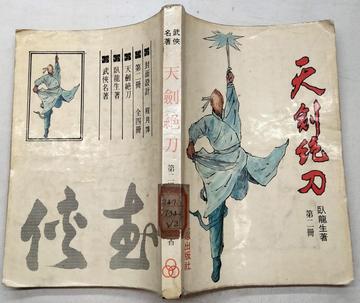 天剑绝刀
臥龍生著
第二冊
武俠
名著
天劍絕刀
第二
出版社
封面設計
第二冊 全四冊
天劍絕刀
臥龍生著
武俠名著
武俠